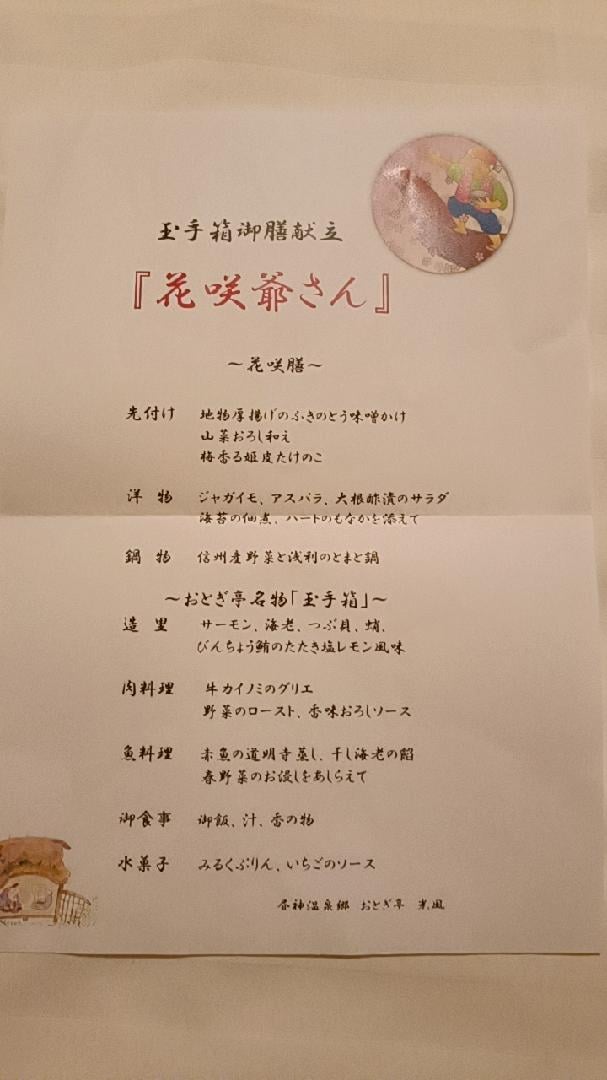 玉手箱御膳献立
『花咲爺さん』
～花咲膳～
先付け 地物厚揚げのふきのとう味噌かけ
山菜おろし和え
梅香る姫皮たけのこ
洋 物 ジャガイモ、アスパラ、大根酢漬のサラダ
海苔の佃煮、ハートのもなかを添えて
鍋 物 信州産野菜と浅利のとまと鍋
～おとぎ亭名物「玉手箱」～
造 里 サーモン、海老、つぶ貝、蛸、
びんちょう鮪のたたき塩レモン風味
肉料理 牛カイノミのグリエ
野菜のロースト、香味おろしソース
魚料理 赤魚の道明寺蒸し、干し海老の餡
春野菜のお浸しをあしらえて
御食事 御飯、汁、香の物
水菓子 みるくぷりん、いちごのソース
昼神温泉郷 おとぎ亭 光風